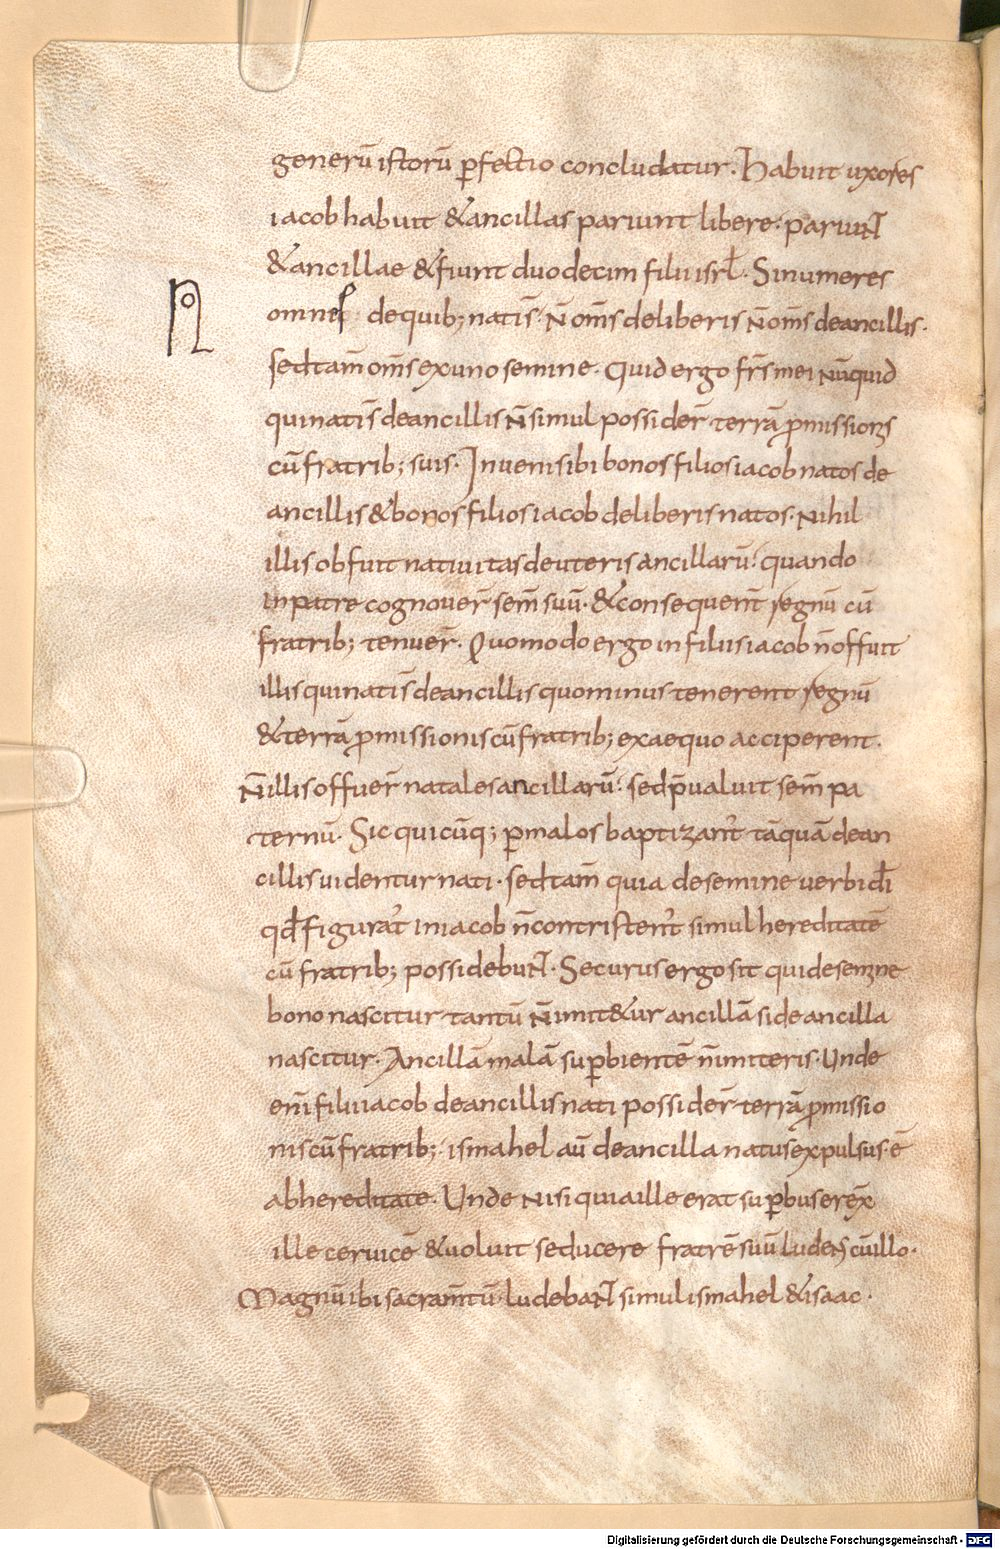 generū istorū ꝑfectio concludatur. Habuit uxores
iacob habuit &ancillas pariunt libere· pariunt
&ancillae &fiunt duodecim filii isrl̄· Sinumeres
omnes dequib; natis̄· N̄ om̄s deliberis N̄ om̄s deancillis·
sedtam̄ om̄s exuno semine· Quid ergo fr̄s mei Nūquid
quinatis̄ deancillis N̄ simul posseder̄ terrā ꝓmissionis
cū fratrib; suis· Inuenisibi bonos filios iacob natos de
ancillis &bonos filios iacob deliberis natos· Nihil
illis obfuit natiuitas deuteris ancillarū· quando
inpatre cognouer̄ sem̄ suū· &consequent̄ regnū cū
fratrib; tenuer̄· Quomodo ergo in filiis iacob n̄ offuit
illis quinatis̄ deancillis quominus tenerent regnū
&terrā ꝓmissionis cū fratrib; exaequo acciperent·
N̄ illis offuer̄ natales ancillarū· sed p̄ualuit sem̄ pa
ternū· Sic quicūq; ꝑmalos baptizant̄ tāquā dean
cillis uidentur nati· sedtam̄ quia desemine uerbi dī
qd̄ figurat̄ in iacob n̄ contristent̄ simul hereditatē
cū fratrib; possidebunt· Securus ergo sit quidesemine
bono nascitur tantū N̄ imit&ur ancillā side ancilla
nascitur· Ancillā malā suꝑbientē n̄ imiteris· Unde
enī filii iacob deancillis nati posseder̄ terrā ꝓmissio
nis cū fratrib;· ismahel aū deancilla natus expulsus· ē
abhereditate· Unde Nisi quia ille erat suꝑbus erex̄
ille ceruicē &uoluit seducere fratrē suū ludens cū illo·
Magnū ibi sacram̄tū· ludebant simul ismahel &isaac·
Digitalisierung gefördert durch die Deutsche Forschungsgemeinschaft - DFG